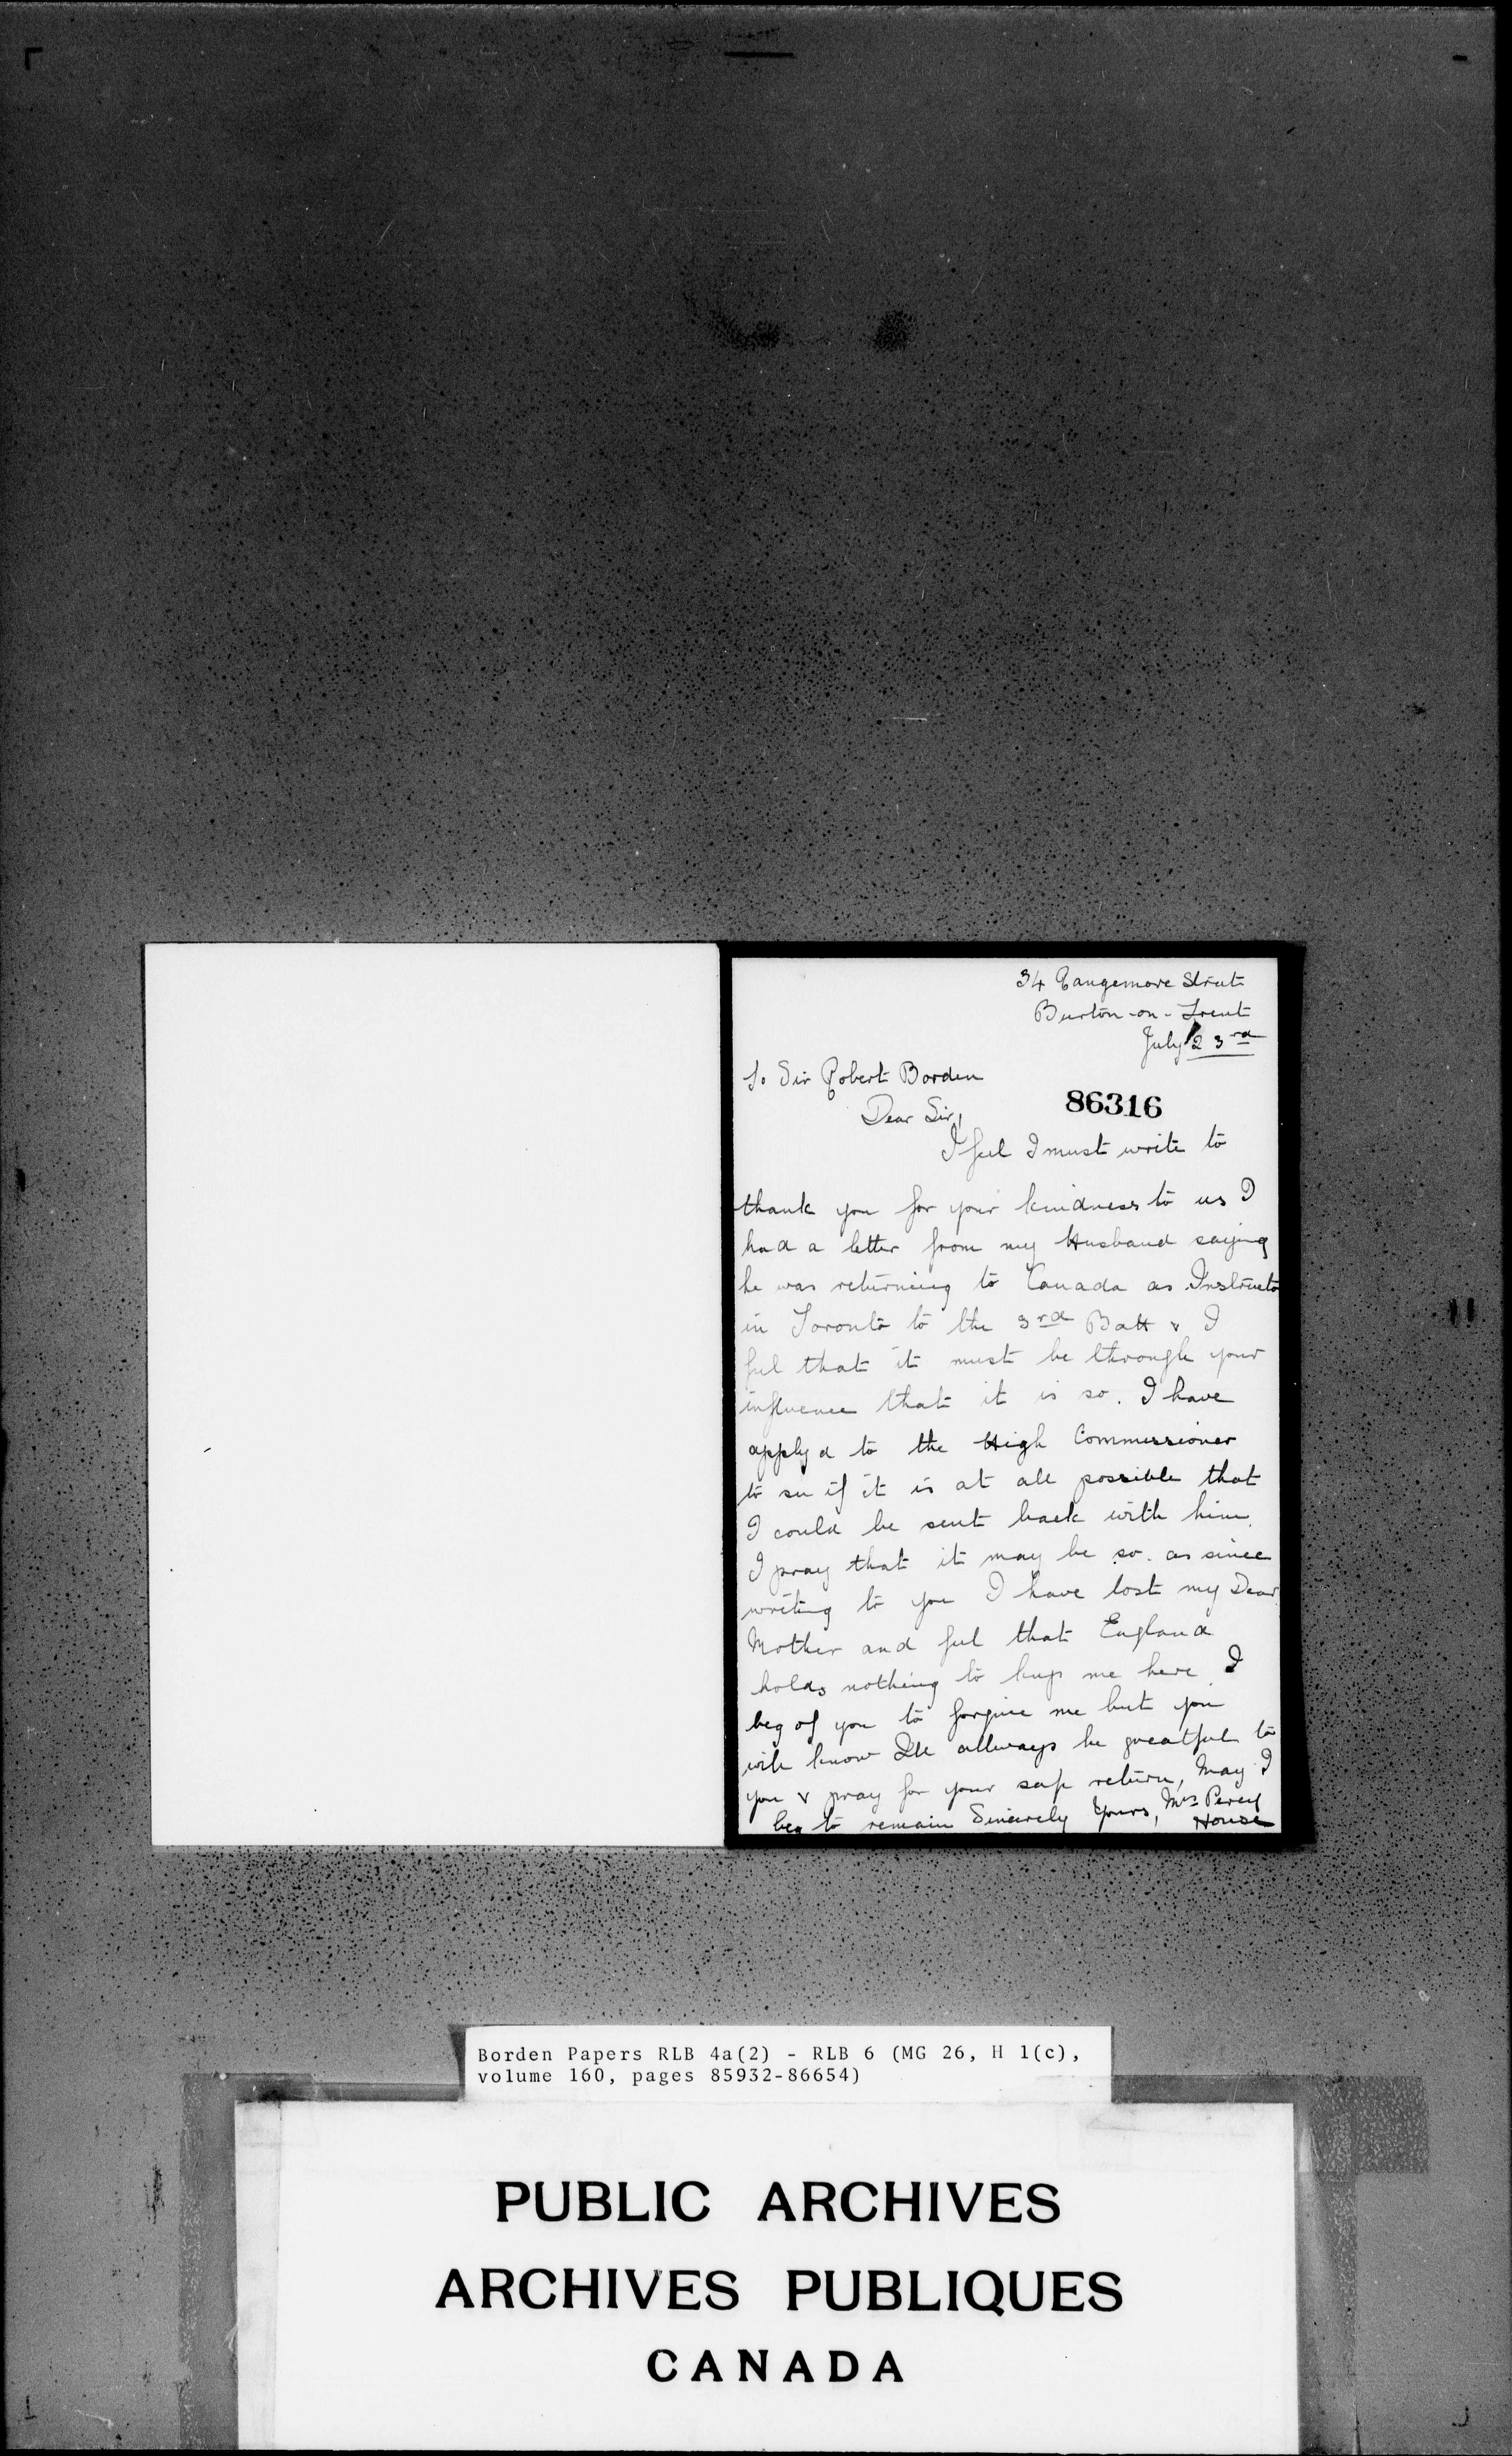 34 Rangemore Street
Burton-on-Trent
July 23rd
To Sir Robert Borden
86316
Dear Sir,
I feel I must write to
thank you for your kindness to us I
had a letter from my Husband saying
he was returning to Canada as Instructo
in Toronto to the 3rd Batt & I
feel that it must be through your
influence that it is so. I have
applyd to the High Commissioner
to see if it is at all possible that
I could be sent back with him.
I pray that it may be so. as since
writing to you I have lost my Dear
Mother and feel that England
holds nothing to keep me here I
beg of you to forgive me but you
will know Ill allways be greatful to
you & pray for your safe return, May I
beg to remain Sincerely Yours, Mrs Percy
House
Borden Papers RLB 4a(2) - RLB 6 (MG 26, H 1(c),
volume 160, pages 85932-86654)
PUBLIC ARCHIVES
ARCHIVES PUBLIQUES
CANADA